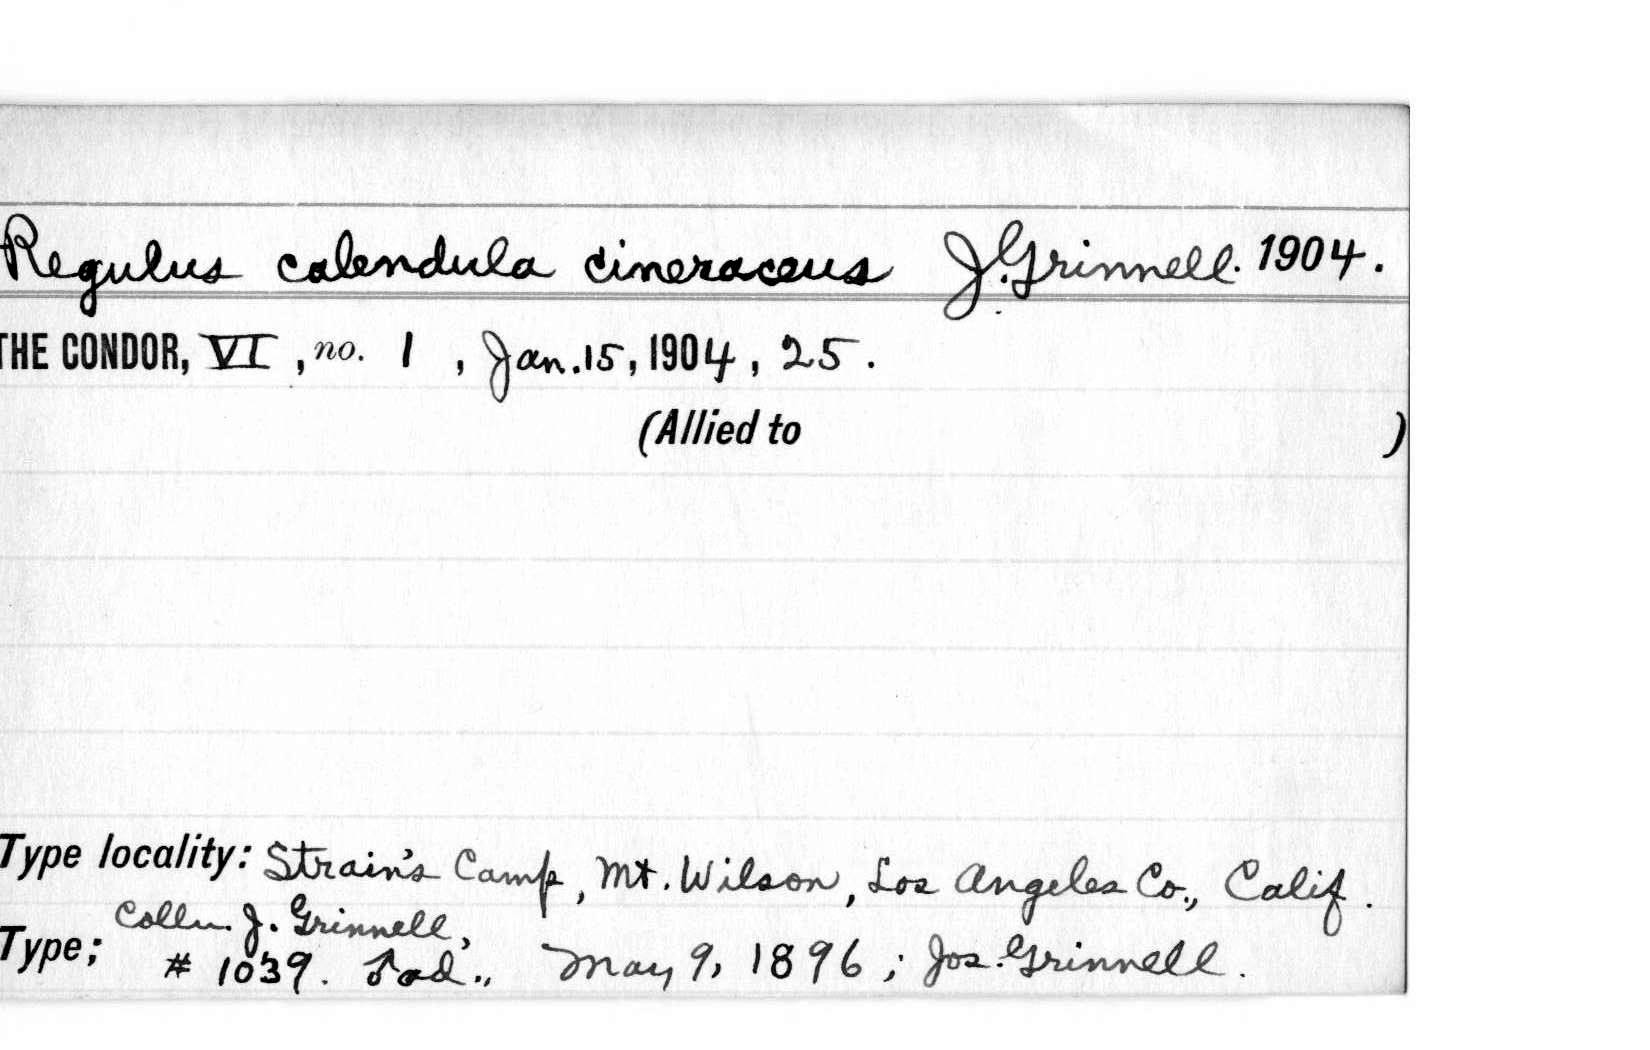 Regulus calendula cineraceus J. Grinnell. 1904.
THE CONDOR, VI, no. 1, Jan. 15, 1904, 25.
(Allied to )
Type locality: Strain's Camp, Mt. Wilson, Los Angeles Co., Calif.
Type; Colln. J. Grinnell,
# 1039. ♂ ad., May 9, 1896; Jos. Grinnell.